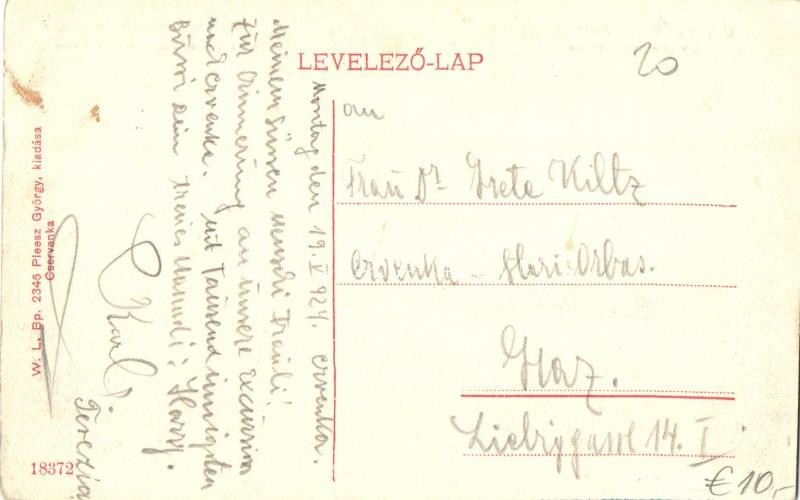 LEVELEZŐ-LAP
20
Montag den 19. V 924. Crvenka.
Meinem süssen Mundi Frauli!
Zur Erinnerung an unsere Excursion
nach Crvenka. Mit Tausend innigsten
Bussi Dein treues Mandi: Harry.
Karl
Terezia
an
Frau Dr Grete Kiltz
Crvenka - Stari-Orbas.
Graz.
Liebiggasse 14. I
W. L. Bp. 2345 Pleesz György, kiadása
Cservenka
18372
€ 10,-